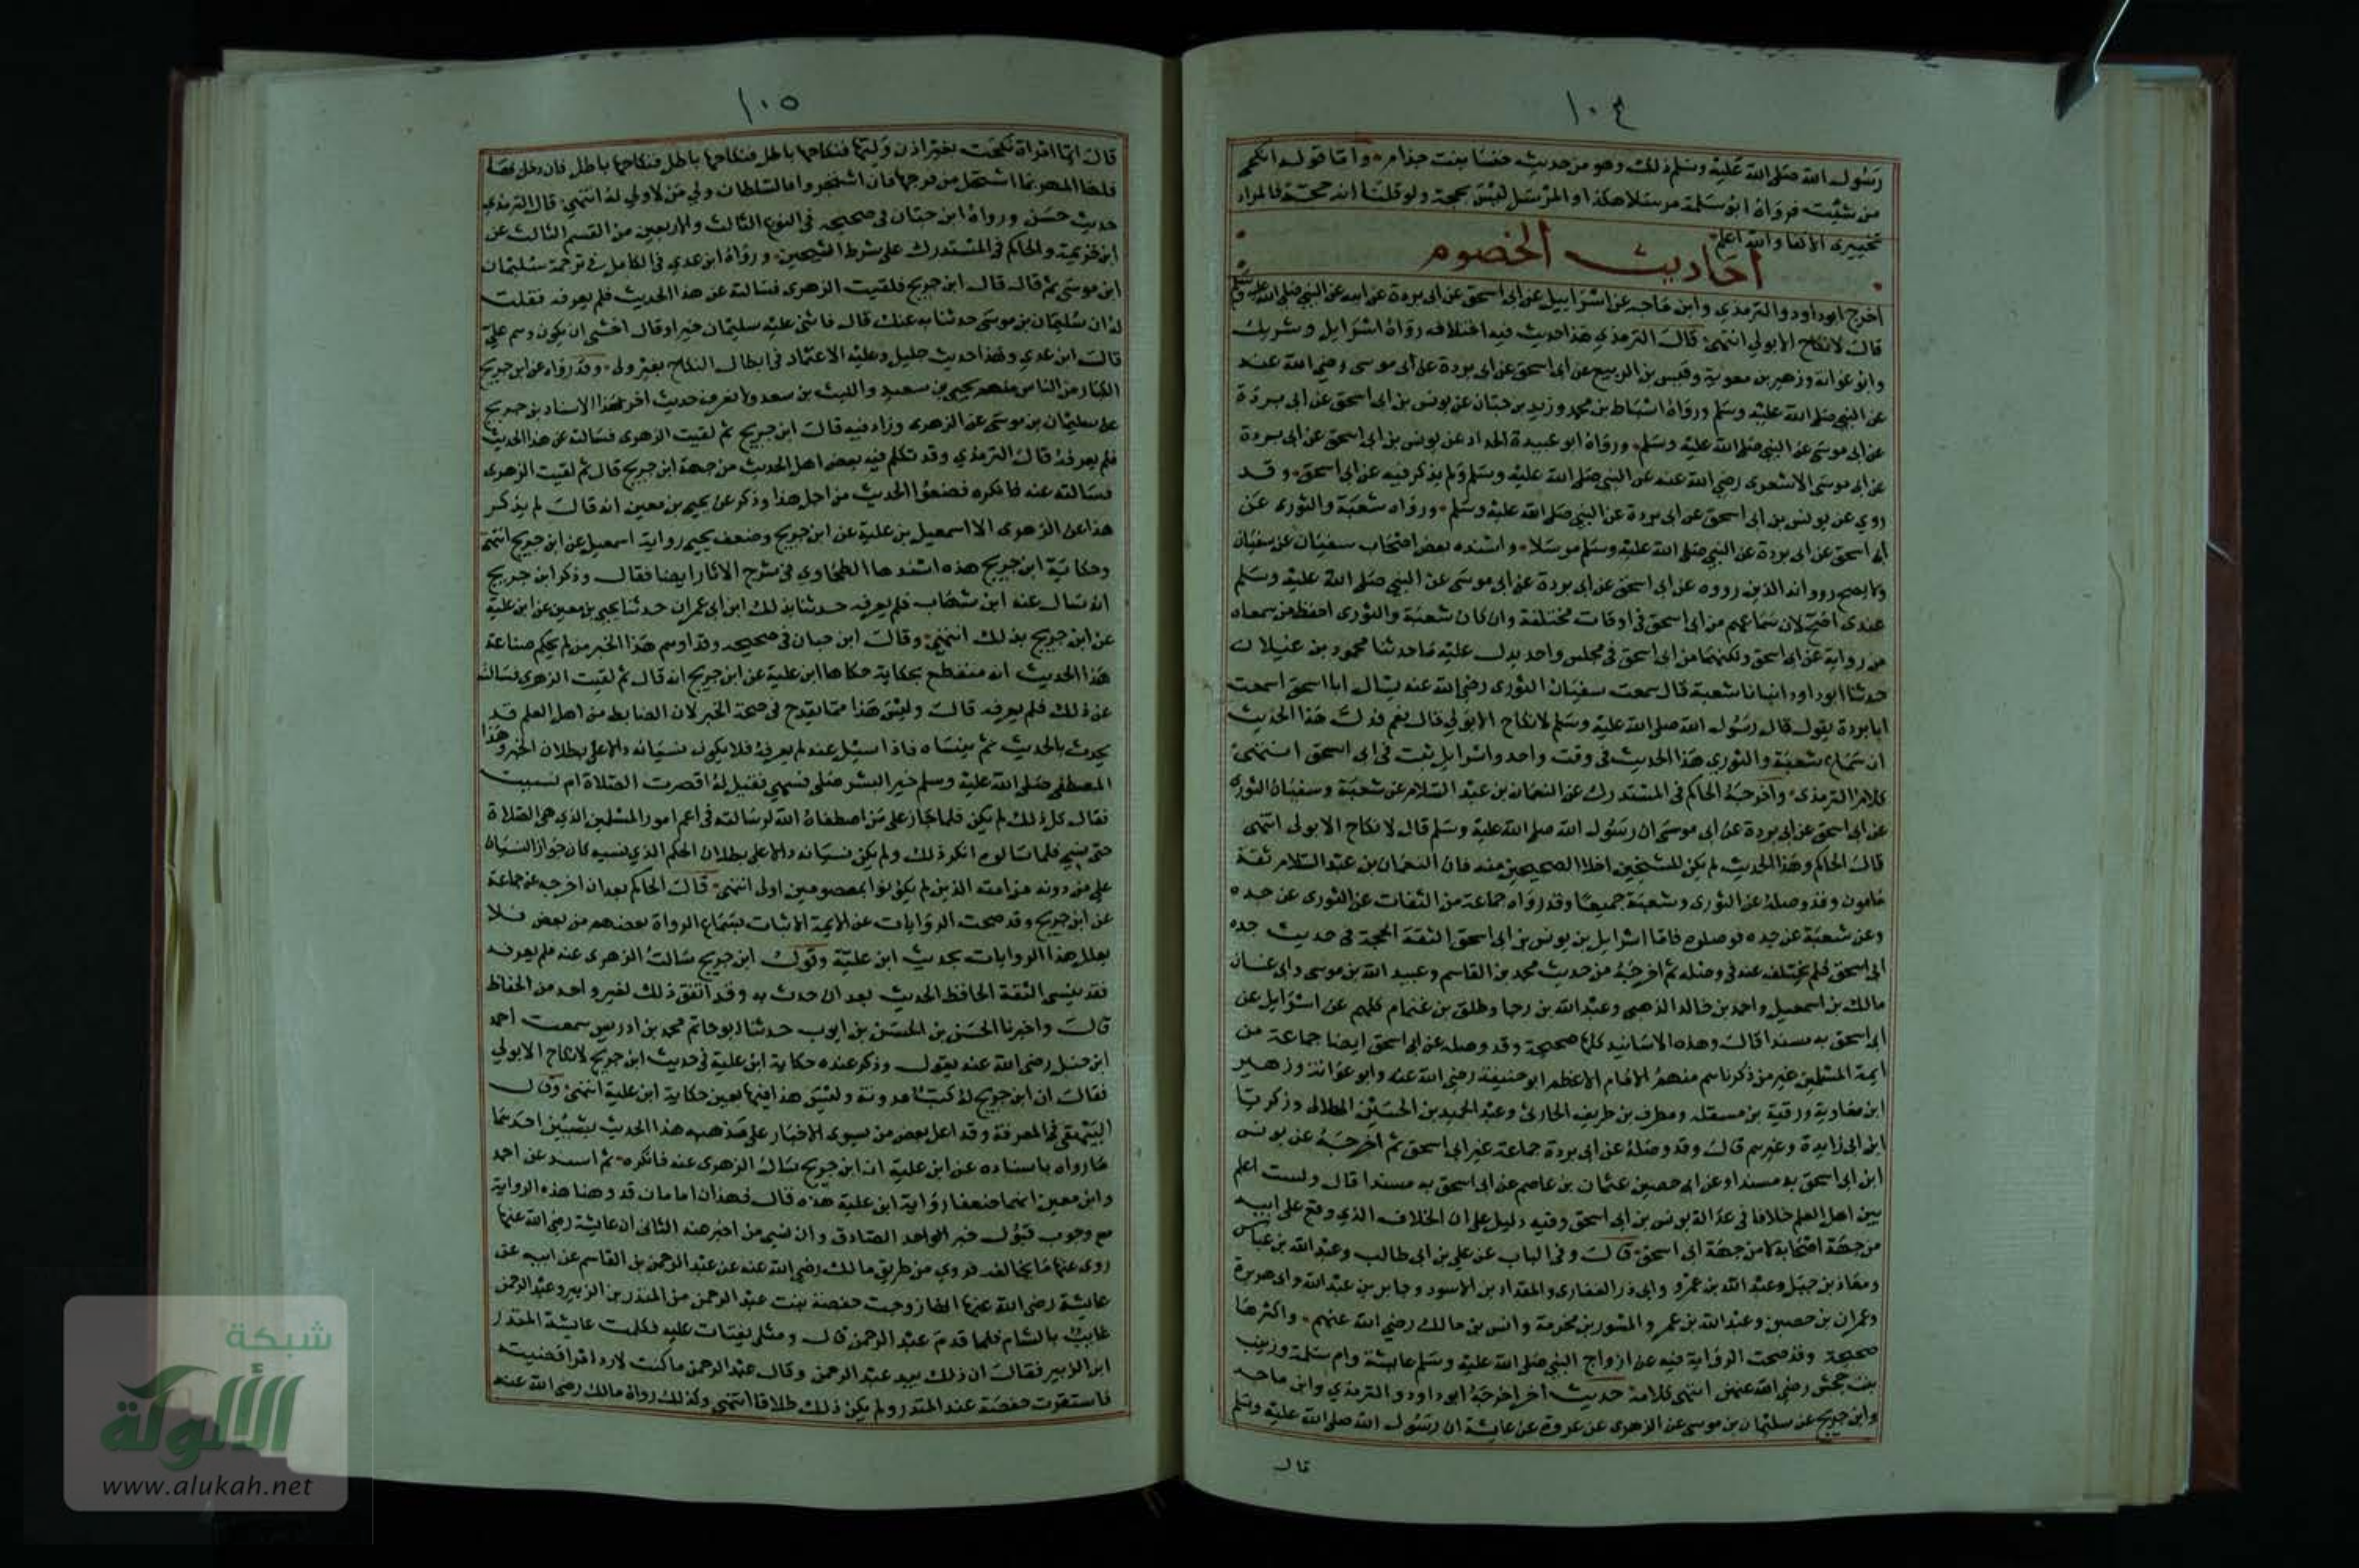 ١٠٤
رسول الله صلى الله عليه وسلم ذلك وهو من حديث خنسا بنت جذام واما قوله انكحي
من شيت فرواه ابو سلمة مرسلا هكذا والمرسل ليس بحجة ولو قلنا انه حجة فالمراد
تخييرى الاكفا والله اعلم
احاديث الخصوم
اخرج ابو داود والترمذي وابن ماجه عن اسرائيل عن ابى اسحق عن ابى بردة عن ابيه عن النبي صلى الله عليه وسلم
قال لا نكاح الا بولي انتهى قال الترمذي هذا حديث فيه اختلاف رواه اسرايل وشريك
وابو عوانة وزهير بن معوية وقيس بن الربيع عن ابى اسحق عن ابى بردة عن ابى موسى رضي الله عنه
عن النبي صلى الله عليه وسلم ورواه اسباط بن محمد وزيد بن حبان عن يونس بن ابى اسحق عن ابى بردة
عن ابى موسى عن النبي صلى الله عليه وسلم ورواه ابو عبيدة الحداد عن يونس بن ابى اسحق عن ابى بردة
عن ابى موسى الاشعرى رضي الله عنه عن النبي صلى الله عليه وسلم ولم يذكر فيه عن ابى اسحق وقد
روي عن يونس بن ابى اسحق عن ابى بردة عن النبي صلى الله عليه وسلم ورواه شعبة والثورى عن
ابى اسحق عن ابى بردة عن النبي صلى الله عليه وسلم مرسلا واسنده بعض اصحاب سفيان عن سفيان
ولا يصح ورواية الذين رووه عن ابى اسحق عن ابى بردة عن ابى موسى عن النبي صلى الله عليه وسلم
عندى اصح لان سماعهم من ابى اسحق في اوقات مختلفة وان كان شعبة والثورى احفظ من سمعاه
من رواية عن ابى اسحق ولكنهما من ابى اسحق فى مجلس واحد يدل عليه ما حدثنا محمود بن غيلان
حدثنا ابو داود انبانا شعبة قال سمعت سفيان الثورى رضي الله عنه يسال ابا اسحق اسمعت
ابا بردة يقول قال رسول الله صلى الله عليه وسلم لا نكاح الا بولي قال نعم فدل هذا الحديث
ان سماع شعبة والثورى هذا الحديث فى وقت واحد واسرايل ثبت فى ابى اسحق انتهى
كلام الترمذى واخرجه الحاكم فى المستدرك عن النعمان بن عبد السلام عن شعبة وسفيان الثورى
عن ابى اسحق عن ابى بردة عن ابى موسى ان رسول الله صلى الله عليه وسلم قال لا نكاح الا بولى انتهى
قال الحاكم وهذا الحديث لم يكن للشيخين اخلا الصحيحين منه فان النعمان بن عبد السلام ثقة
مامون وقد وصله عن الثورى وشعبة جميعا وقد رواه جماعة من الثقات عن الثورى عن حده
وعن شعبة عن حده فوصلوه فاما اسرايل بن يونس بن ابى اسحق الثقة الحجة فى حديث جده
ابى اسحق فلم يختلف عنه فى وصله ثم اخرجه من حديث محمد بن القاسم وعبيد الله بن موسى وابى غسان
مالك بن اسمعيل واحمد بن خالد الذهبى وعبد الله بن رجا وطلق بن غنام كلهم عن اسرايل عن
ابى اسحق به مسندا قال وهذه الاسانيد كلها صحيحة وقد وصله عن ابى اسحق ايضا جماعة من
ايمة المسلمين غير من ذكرناهم منهم الامام الاعظم ابو حنيفة رضي الله عنه وابو عوانة وزهير
ابن معاوية ورقبة بن مسقله ومطرف بن طريف الحارثى وعبد الحميد بن الحسين الهلالى وزكريا
ابن ابى زايدة وغيرهم قال وقد وصله عن ابى بردة جماعة غير ابى اسحق ثم اخرجه عن يونس
ابن ابى اسحق به مسندا وعن ابى حصين عثمان بن عاصم عن ابى اسحق به مسندا قال ولست اعلم
بين اهل العلم خلافا فى عدالة يونس بن ابى اسحق وفيه دليل على ان الخلاف الذي وقع على ابيه
من جهة اصحابه لا من جهة ابى اسحق قال وفى الباب عن علي بن ابى طالب وعبد الله بن عباس
ومعاذ بن جبل وعبد الله بن عمرو وابى ذر الغفارى والمقداد بن الاسود وجابر بن عبد الله وابى هريرة
وعمران بن حصين وعبد الله بن عمر والمسور بن مخرمة وانس بن مالك رضي الله عنهم واكثرها
صحيحة وقد صحت الرواية فيه عن ازواج النبي صلى الله عليه وسلم عايشة وام سلمة وزينب
بنت جحش رضي الله عنهن انتهى كلامه حديث اخر اخرجه ابو داود والترمذي وابن ماجه
وابن جريج عن سليمان بن موسى عن الزهرى عن عروة عن عايشة ان رسول الله صلى الله عليه وسلم
قال
١٠٥
قال ايما امراة نكحت بغير اذن وليها فنكاحها باطل فنكاحها باطل فنكاحها باطل فان دخل بها
فلها المهر بما استحل من فرجها فان اشتجروا فالسلطان ولي من لا ولي له انتهى قال الترمذي
حديث حسن ورواه ابن حبان فى صحيحه فى النوع الثالث والاربعين من القسم الثالث عن
ابن خزيمة والحاكم فى المستدرك على شرط الشيخين ورواه ابن عدي فى الكامل فى ترجمة سليمان
ابن موسى ثم قال قال ابن جريج فلقيت الزهرى فسالته عن هذا الحديث فلم يعرفه فقلت
له ان سليمان بن موسى حدثنا به عنك قال فاثنى عليه سليمان خيرا وقال اخشى ان يكون وهم علي
قال ابن عدي وهذا حديث جليل وعليه الاعتماد فى ابطال النكاح بغير ولى وقد رواه عن ابن جريج
الكبار من الناس منهم يحيى بن سعيد والليث بن سعد ولا نعرف حديث اخر بهذا الاسناد بن جريج
عن سليمان بن موسى عن الزهرى وزاد فيه قال ابن جريج ثم لقيت الزهرى فسالته عن هذا الحديث
فلم يعرفه قال الترمذي وقد تكلم فيه بعض اهل الحديث من جهة ابن جريج قال ثم لقيت الزهرى
فسالته عنه فانكره فضعفوا الحديث من اجل هذا وذكر عن يحيى بن معين انه قال لم يذكر
هذا عن الزهرى الا اسمعيل بن علية عن ابن جريج وضعف يحيى رواية اسمعيل عن ابن جريج انتهى
وحكاية ابن جريج هذه اسندها الطحاوي فى شرح الاثار ايضا فقال وذكر ابن جريج
انه سال عنه ابن شهاب فلم يعرفه حدثنا بذلك ابن ابى عمران حدثنا يحيى بن معين عن ابن علية
عن ابن جريج بذلك انتهى وقال ابن حبان فى صحيحه وقد اوهم هذا الخبر من لم يحكم صناعة
هذا الحديث انه منقطع بحكاية حكاها ابن علية عن ابن جريج انه قال ثم لقيت الزهرى فسالته
عن ذلك فلم يعرفه قال وليس هذا مما يقدح فى صحة الخبر لان الضابط من اهل العلم قد
يحدث بالحديث ثم ينساه فاذا سيل عنه لم يعرفه فلا يكون نسيانه دالا على بطلان الخبر وهذا
المصطفى صلى الله عليه وسلم خير البشر صلى فسهى فقيل له اقصرت الصلاة ام نسيت
فقال كل ذلك لم يكن فلما جاز على من اصطفاه الله لرسالته فى اعم امور المسلمين الذي هى الصلاة
حتى نسي فلما سالوه انكر ذلك ولم يكن نسيانه دالا على بطلان الحكم الذي نسيه كان جواز النسيان
على من دونه من امته الذين لم يكونوا بمعصومين اولى انتهى قال الحاكم بعد ان اخرجه عن جماعة
عن ابن جريج وقد صحت الروايات عن الايمة الاثبات بسماع الرواة بعضهم من بعض فلا
يعلل هذا الروايات بحديث ابن علية وقول ابن جريج سالت الزهرى عنه فلم يعرفه
فقد ينسى الثقة الحافظ الحديث بعد ان حدث به وقد اتفق ذلك لغير واحد من الحفاظ
قال واخبرنا الحسن بن الحسن بن ايوب حدثنا ابو حاتم محمد بن ادريس سمعت احمد
ابن حنبل رضى الله عنه يقول وذكر عنده حكاية ابن علية فى حديث ابن جريج لا نكاح الا بولي
فقال ان ابن جريج له كتب مدونة وليس هذا فيها يعين حكاية ابن علية انتهى وقال
البيهقى فى المعرفة وقد اعل بعض من يسوى الاخبار على مذهبه هذا الحديث بشيئين احدهما
ما رواه باسناده عن ابن علية ان ابن جريج سال الزهرى عنه فانكره ثم اسند عن احمد
وابن معين انهما ضعفا رواية ابن علية هذه قال فهذان امامان قد وهنا هذه الرواية
مع وجوب قبول خبر الواحد الصادق وان نسي من اخبر عنه الثانى ان عايشة رضي الله عنها
روى عنها ما يخالفه فروي من طريق مالك رضي الله عنه عن عبد الرحمن بن القاسم عن ابيه عن
عايشة رضى الله عنها انها زوجت حفصة بنت عبد الرحمن من المنذر بن الزبير وعبد الرحمن
غايب بالشام فلما قدم عبد الرحمن قال ومثلى يفتات عليه فكلمت عايشة المنذر
ابن الزبير فقال ان ذلك بيد عبد الرحمن وقال عبد الرحمن ما كنت لارد امرا قضيته
فاستقرت حفصة عند المنذر ولم يكن ذلك طلاقا انتهى وكذلك رواه مالك رضى الله عنه
شبكة
الألوكة
www.alukah.net